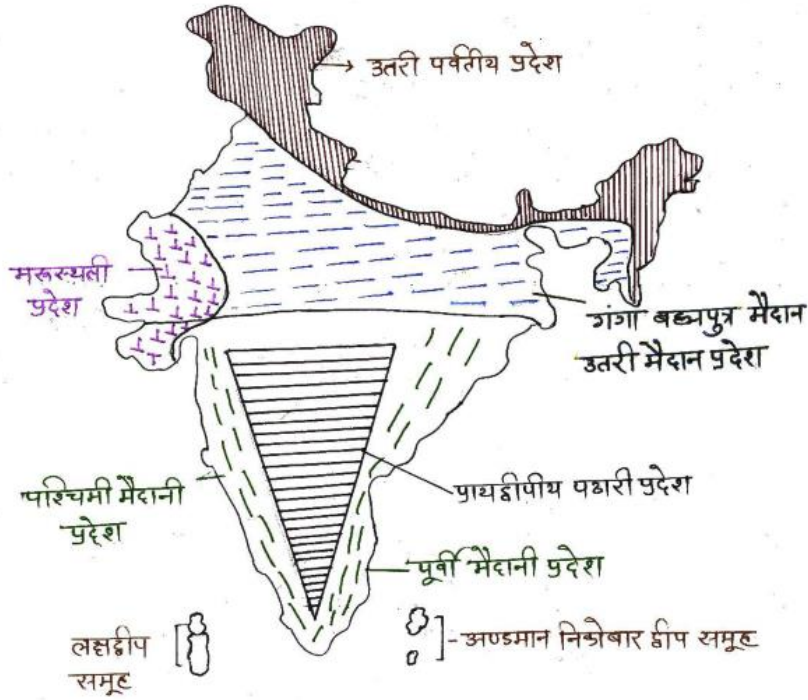 उतरी पर्वतीय प्रदेश
मरूस्थली
प्रदेश
गंगा बह्मपुत्र मैदान
उतरी मैदान प्रदेश
पश्चिमी मैदानी
प्रदेश
प्रायद्वीपीय पठारी प्रदेश
पूर्वी मैदानी प्रदेश
लक्षद्वीप
समूह
अण्डमान निकोबार द्वीप समूह